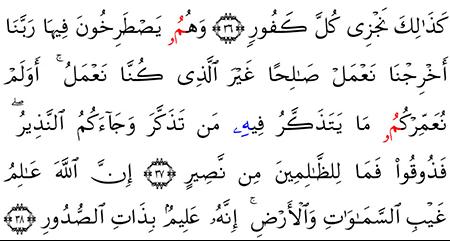 كَذَٰلِكَ نَجْزِى كُلَّ كَفُورٍ ﴿٣٦﴾ وَهُمُۥ يَصْطَرِخُونَ فِيهَا رَبَّنَا
أَخْرِجْنَا نَعْمَلْ صَـٰلِحًا غَيْرَ ٱلَّذِى كُنَّا نَعْمَلُ ۚ أَوَلَمْ
نُعَمِّرْكُمُۥ مَا يَتَذَكَّرُ فِيهِۦ مَن تَذَكَّرَ وَجَآءَكُمُ ٱلنَّذِيرُ ۖ
فَذُوقُوا۟ فَمَا لِلظَّـٰلِمِينَ مِن نَّصِيرٍ ﴿٣٧﴾ إِنَّ ٱللَّهَ عَـٰلِمُ
غَيْبِ ٱلسَّمَـٰوَٰتِ وَٱلْأَرْضِ ۚ إِنَّهُۥ عَلِيمٌۢ بِذَاتِ ٱلصُّدُورِ ﴿٣٨﴾